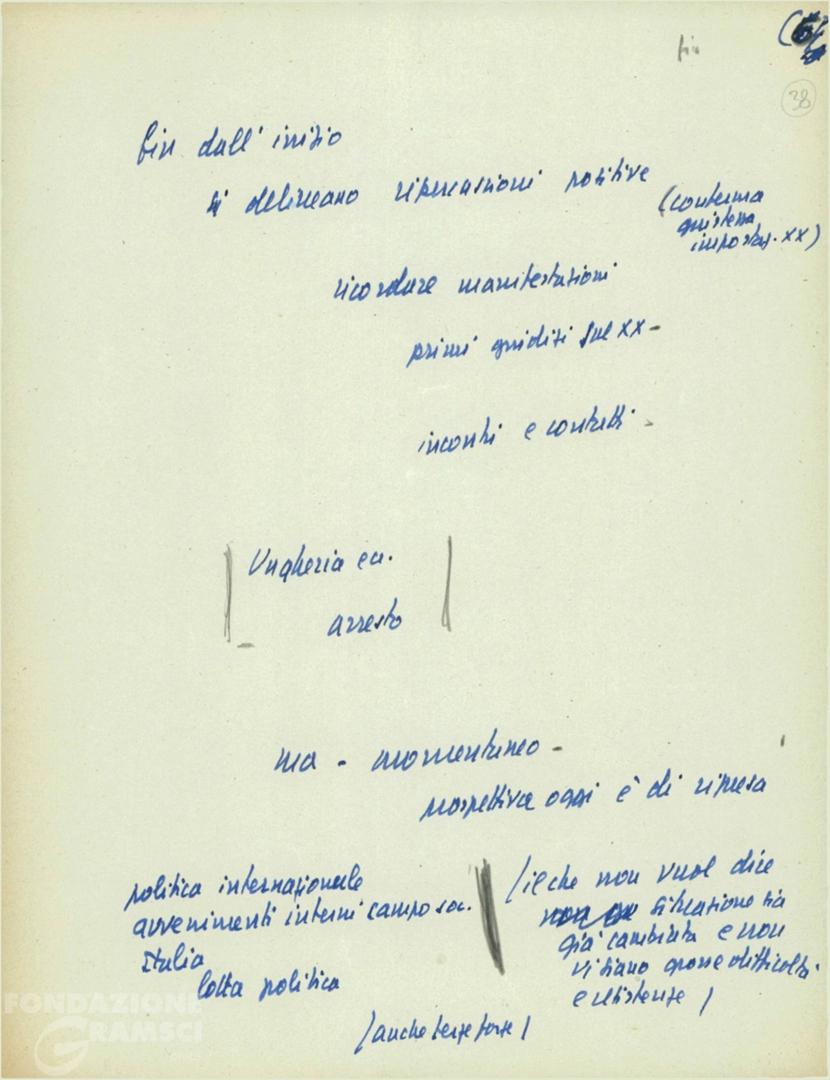 fin
38
fin dall' inizio
si delineano ripercussioni positive
(conferma
giustezza
impostaz. XX)
ricordare manifestazioni
primi giudizi sul XX -
incontri e contatti -
Ungheria ecc.
arresto
ma - momentaneo -
prospettiva oggi è di ripresa
politica internazionale
avvenimenti interni campo soc.
Italia
lotta politica
(il che non vuol dire
situazione sia
già cambiata e non
vi siano grosse difficoltà
e resistenze)
(anche terze forze)
FONDAZIONE
GRAMSCI